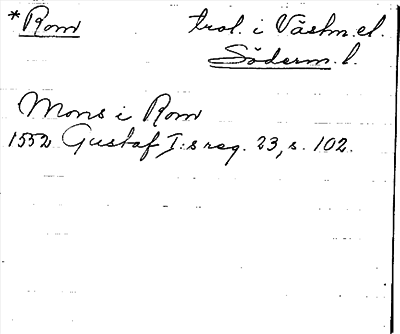 *Rom trol. i Västm. el.
Söderm. l.
Mons i Rom
1552 Gustaf I:s reg. 23, s. 102.